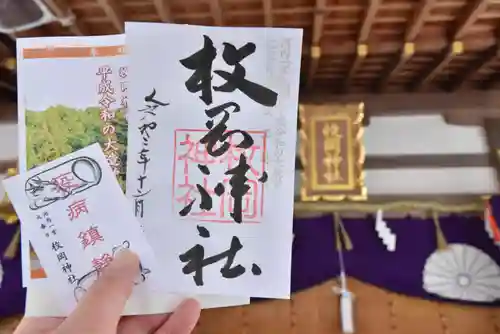 枚岡神社
枚岡
神社
令和二年十二月
平成令和の大
疫病鎮静
枚岡神社
枚岡神社